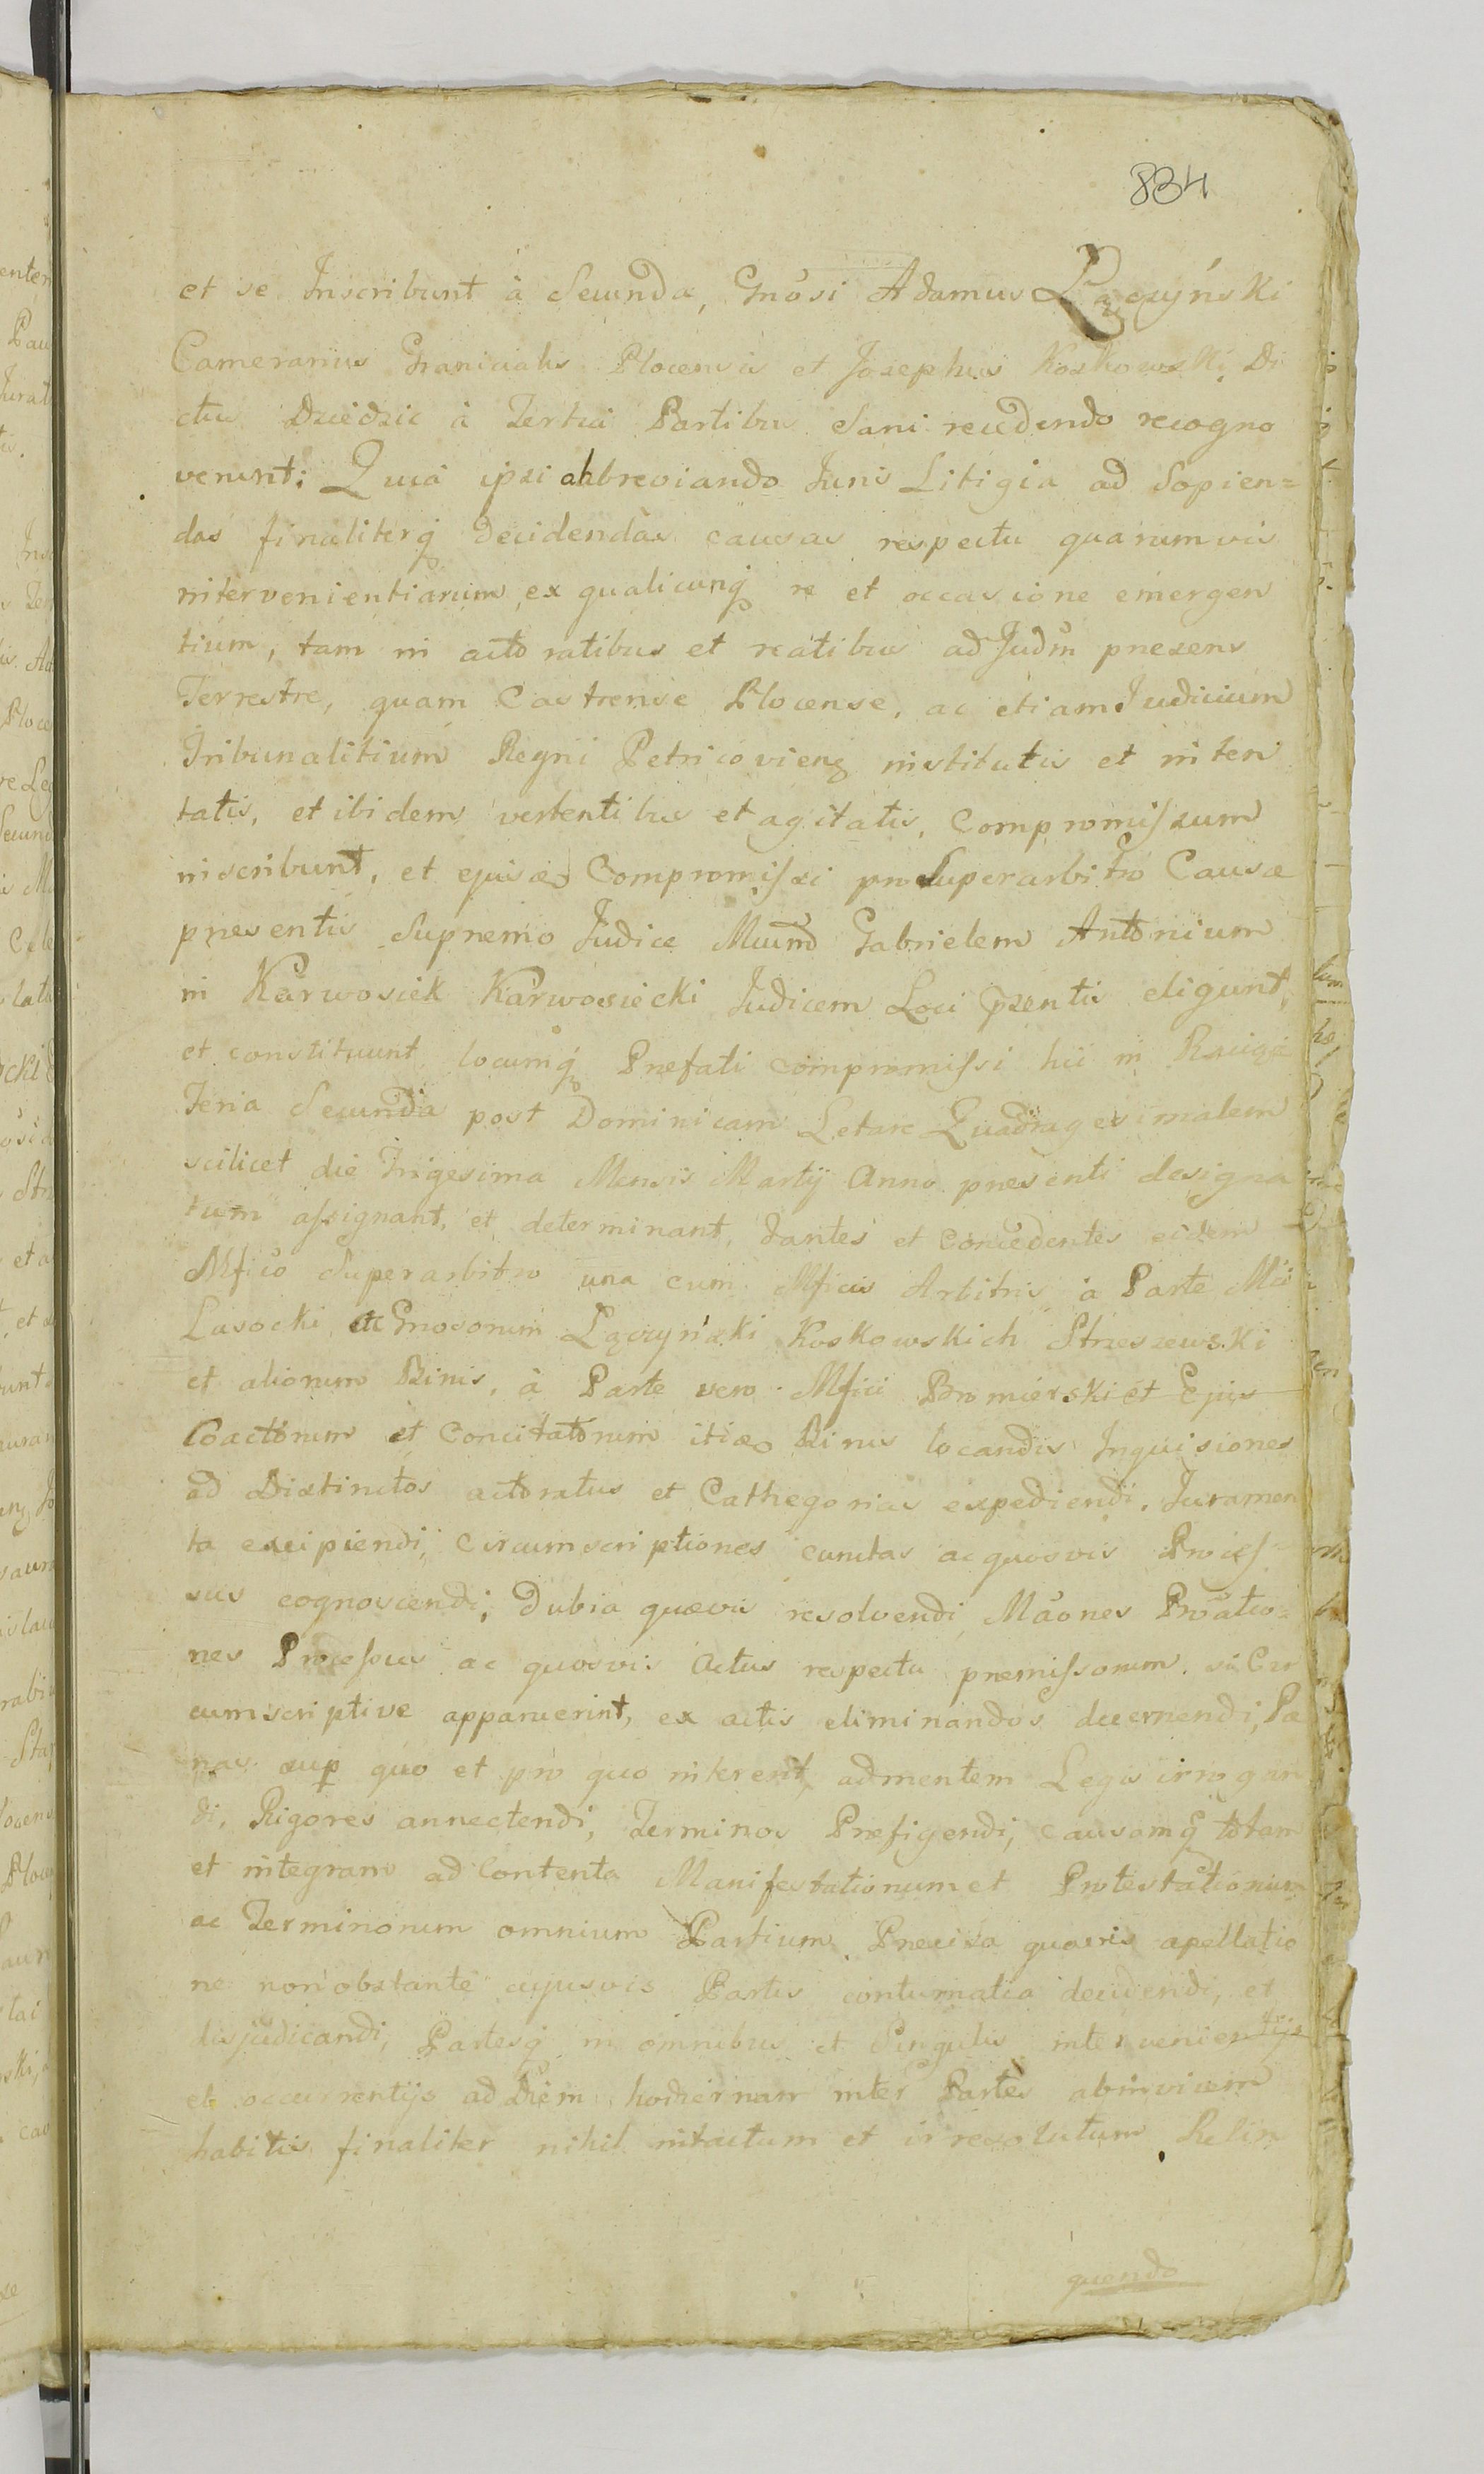 834
et se Inscribunt à Secunda, Gnosi Adamus Łączyński
Camerarius Granicialis Plocensis et Josephus Koskowski Di
ctus Dziedzic à Tertia Partibus Sani recedendo recogno
verunt: Quia ipsi abbreviando Juris Litigia ad Sopien=
das finaliterq decidendas causas respectu quarumvis
intervenientiarum, ex qualicunq re et occasione emergen
tium, tam in actoratibus et reatibus ad Judm presens
Terrestre, quam Castrense Plocense, ac etiam Judicium
Tribunalitium Regni Petricovien institutis et inten
tatis, et ibidem vertentibus et agitatis, Compromissum
inscribunt, et ejusdem Compromissi pro Superarbitro Causæ
presentis Supremo Judice Mcum Gabrielem Antonium
in Karwosiek Karwosiecki Judicem Loci psentis eligunt,
et constituunt, locumq Prefati compromissi hic in Raciąż
Feria Secunda post Dominicam Letare Quadragesimalem
scilicet die Trigesima Mensis Martij Anno presenti designa
tum assignant, et determinant, dantes et Concedentes eidem
Mfico Superarbitro una cum Mficis Arbitris à Parte Mci
Lasocki ac Gnosorum Łączyński Koskowskich Strzeszewski
et aliorum Binis, à Parte vero Mfici Bromierski et Ejus
Coactorum et Concitatorum itidem Binis locandis Inquisiones
ad Distinctos actoratus et Cathegorias expediendi, Juramen
ta excipiendi, Circumscriptiones cunctas ac quosvis Proces
sus cognoscendi, Dubia quævis resolvendi, Mãones Prõatio=
nes Processus ac quosvis Actus respectu premissorum, si Cir
cumscriptive apparuerint, ex actis eliminandos decernendi, Pæ
nas sup quo et pro quo intererit, ad mentem Legis irrogan
di, Rigores annectendi, Terminos Prefigendi, Causamq totam
et integram ad Contenta Manifestationum et Protestationum
ac Terminorum omnium Partium Precisa quavis apellatio
ne non obstante cujusvis Partis contumatia decidendi, et
disjudicandi, Partesq in omnibus et Singulis intervenientijs
et occurrentijs ad Diem hodiernam inter Partes abinvicem
habitis finaliter nihil intactum et irresolutum Relin
quendo